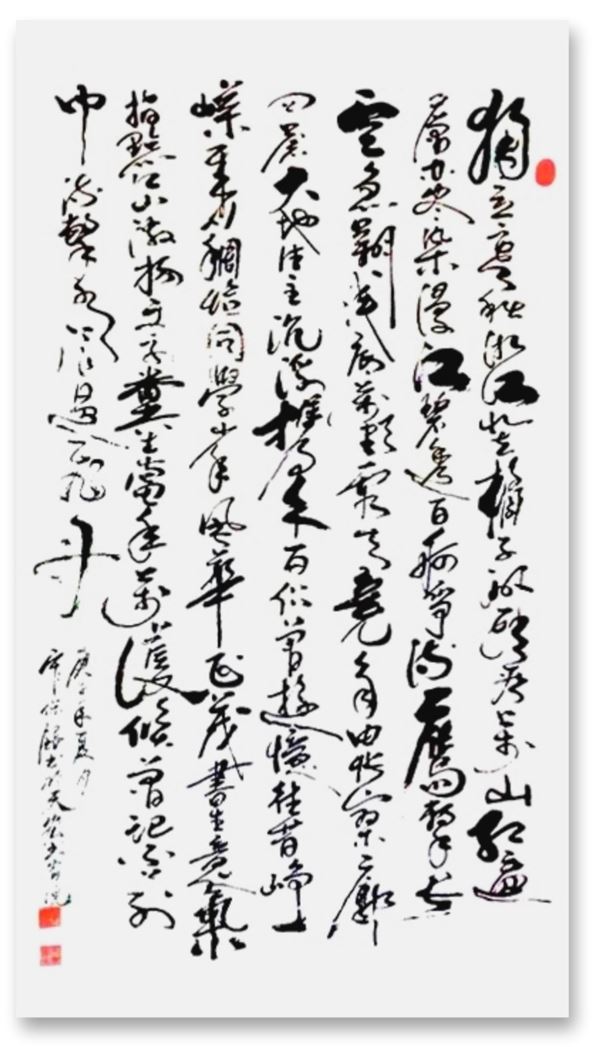 獨立寒秋湘江北去橘子洲頭看萬山紅遍
層林盡染漫江碧透百舸爭流鷹擊長
空魚翔淺底萬類霜天竟自由悵寥廓
問蒼大地誰主沉浮攜來百侶曾遊憶往昔崢
嶸歲月稠恰同學少年風華正茂書生意氣
指點江山激揚文字糞土當年萬戶侯曾記否到
中流擊水浪遏飛舟
庚子年夏月